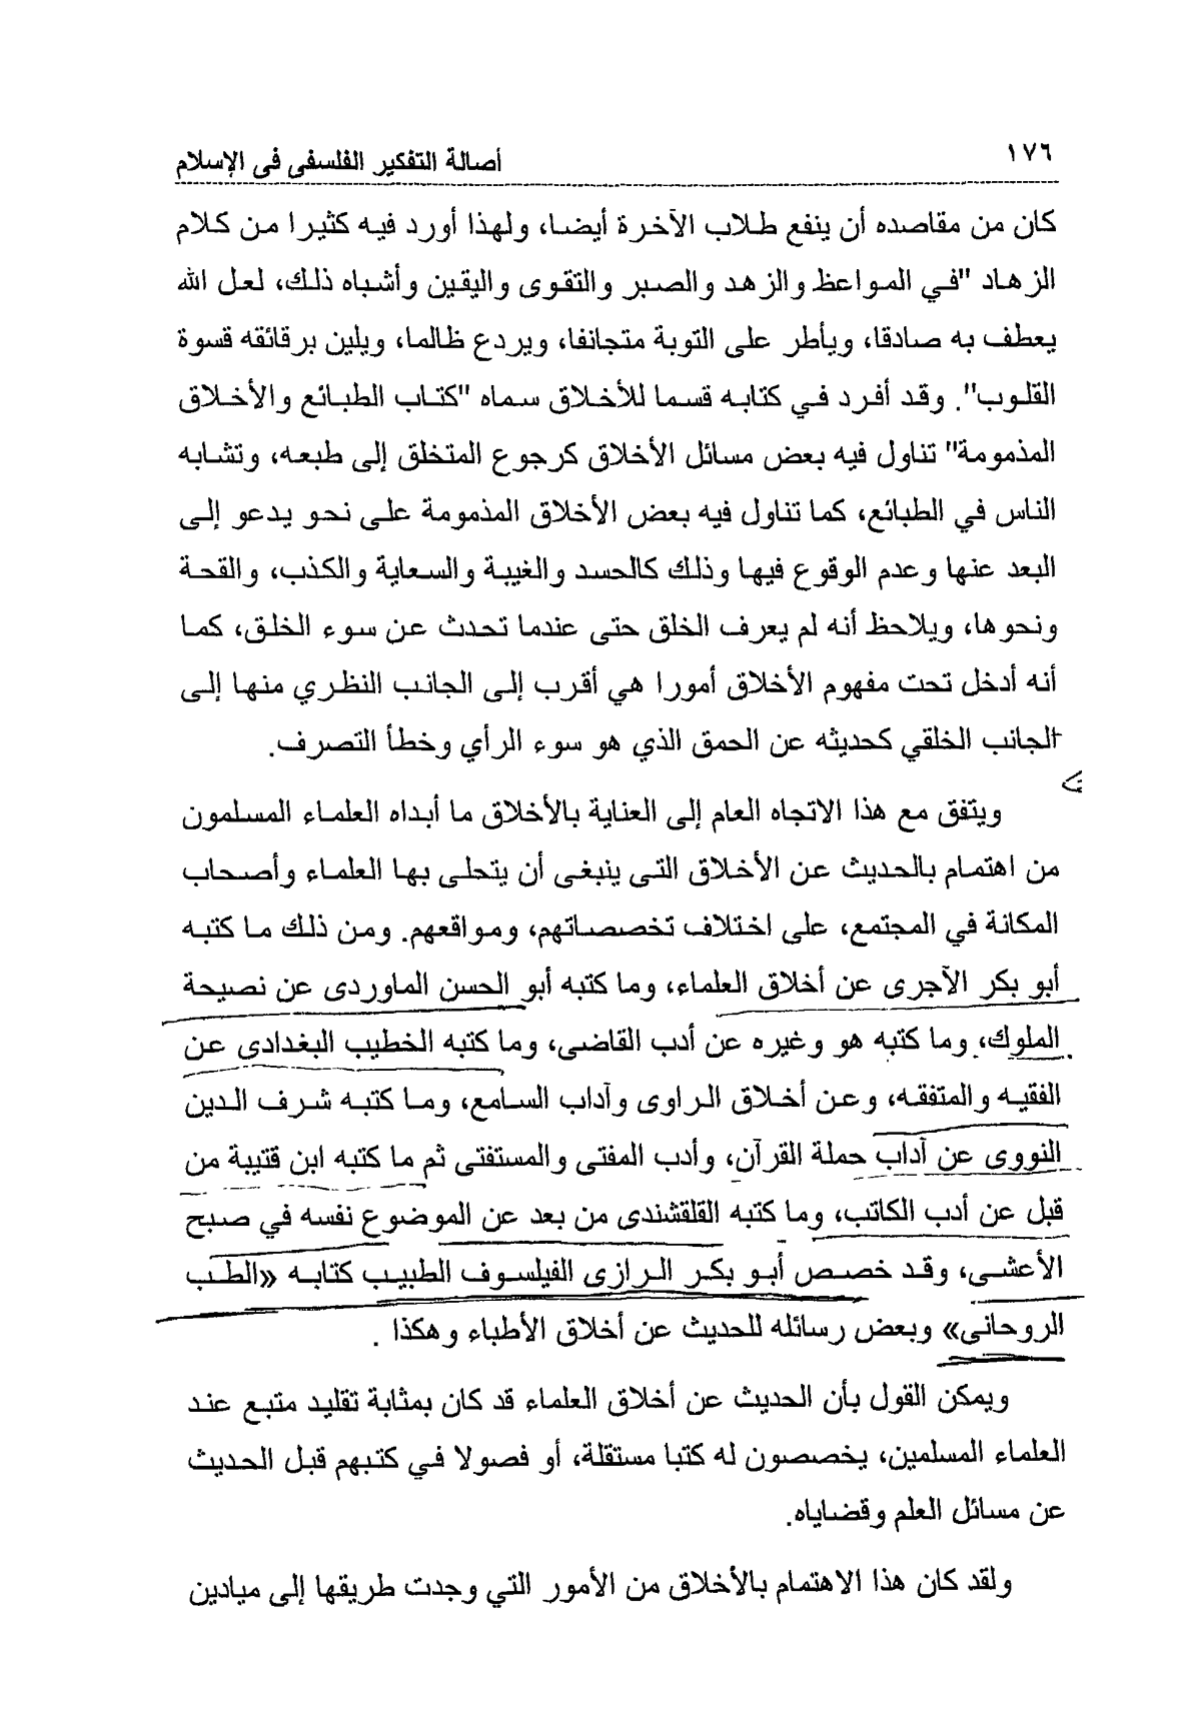 ١٧٦
أصالة التفكير الفلسفى فى الإسلام
كان من مقاصده أن ينفع طلاب الآخرة أيضا، ولهذا أورد فيه كثيرا من كلام
الزهاد "في المواعظ والزهد والصبر والتقوى واليقين وأشباه ذلك، لعل الله
يعطف به صادقا، ويأطر على التوبة متجانفا، ويردع ظالما، ويلين برقائقه قسوة
القلوب". وقد أفرد في كتابه قسما للأخلاق سماه "كتاب الطبائع والأخلاق
المذمومة" تناول فيه بعض مسائل الأخلاق كرجوع المتخلق إلى طبعه، وتشابه
الناس في الطبائع، كما تناول فيه بعض الأخلاق المذمومة على نحو يدعو إلى
البعد عنها وعدم الوقوع فيها وذلك كالحسد والغيبة والسعاية والكذب، والقحة
ونحوها، ويلاحظ أنه لم يعرف الخلق حتى عندما تحدث عن سوء الخلق، كما
أنه أدخل تحت مفهوم الأخلاق أمورا هي أقرب إلى الجانب النظري منها إلى
الجانب الخلقي كحديثه عن الحمق الذي هو سوء الرأي وخطأ التصرف.
ويتفق مع هذا الاتجاه العام إلى العناية بالأخلاق ما أبداه العلماء المسلمون
من اهتمام بالحديث عن الأخلاق التى ينبغى أن يتحلى بها العلماء وأصحاب
المكانة في المجتمع، على اختلاف تخصصاتهم، ومواقعهم. ومن ذلك ما كتبه
أبو بكر الآجرى عن أخلاق العلماء، وما كتبه أبو الحسن الماوردى عن نصيحة
الملوك، وما كتبه هو وغيره عن أدب القاضى، وما كتبه الخطيب البغدادى عن
الفقيه والمتفقه، وعن أخلاق الراوى وآداب السامع، وما كتبه شرف الدين
النووى عن آداب حملة القرآن، وأدب المفتى والمستفتى ثم ما كتبه ابن قتيبة من
قبل عن أدب الكاتب، وما كتبه القلقشندى من بعد عن الموضوع نفسه في صبح
الأعشى، وقد خصص أبو بكر الرازى الفيلسوف الطبيب كتابه «الطب
الروحانى» وبعض رسائله للحديث عن أخلاق الأطباء وهكذا .
ويمكن القول بأن الحديث عن أخلاق العلماء قد كان بمثابة تقليد متبع عند
العلماء المسلمين، يخصصون له كتبا مستقلة، أو فصولا في كتبهم قبل الحديث
عن مسائل العلم وقضاياه.
ولقد كان هذا الاهتمام بالأخلاق من الأمور التي وجدت طريقها إلى ميادين